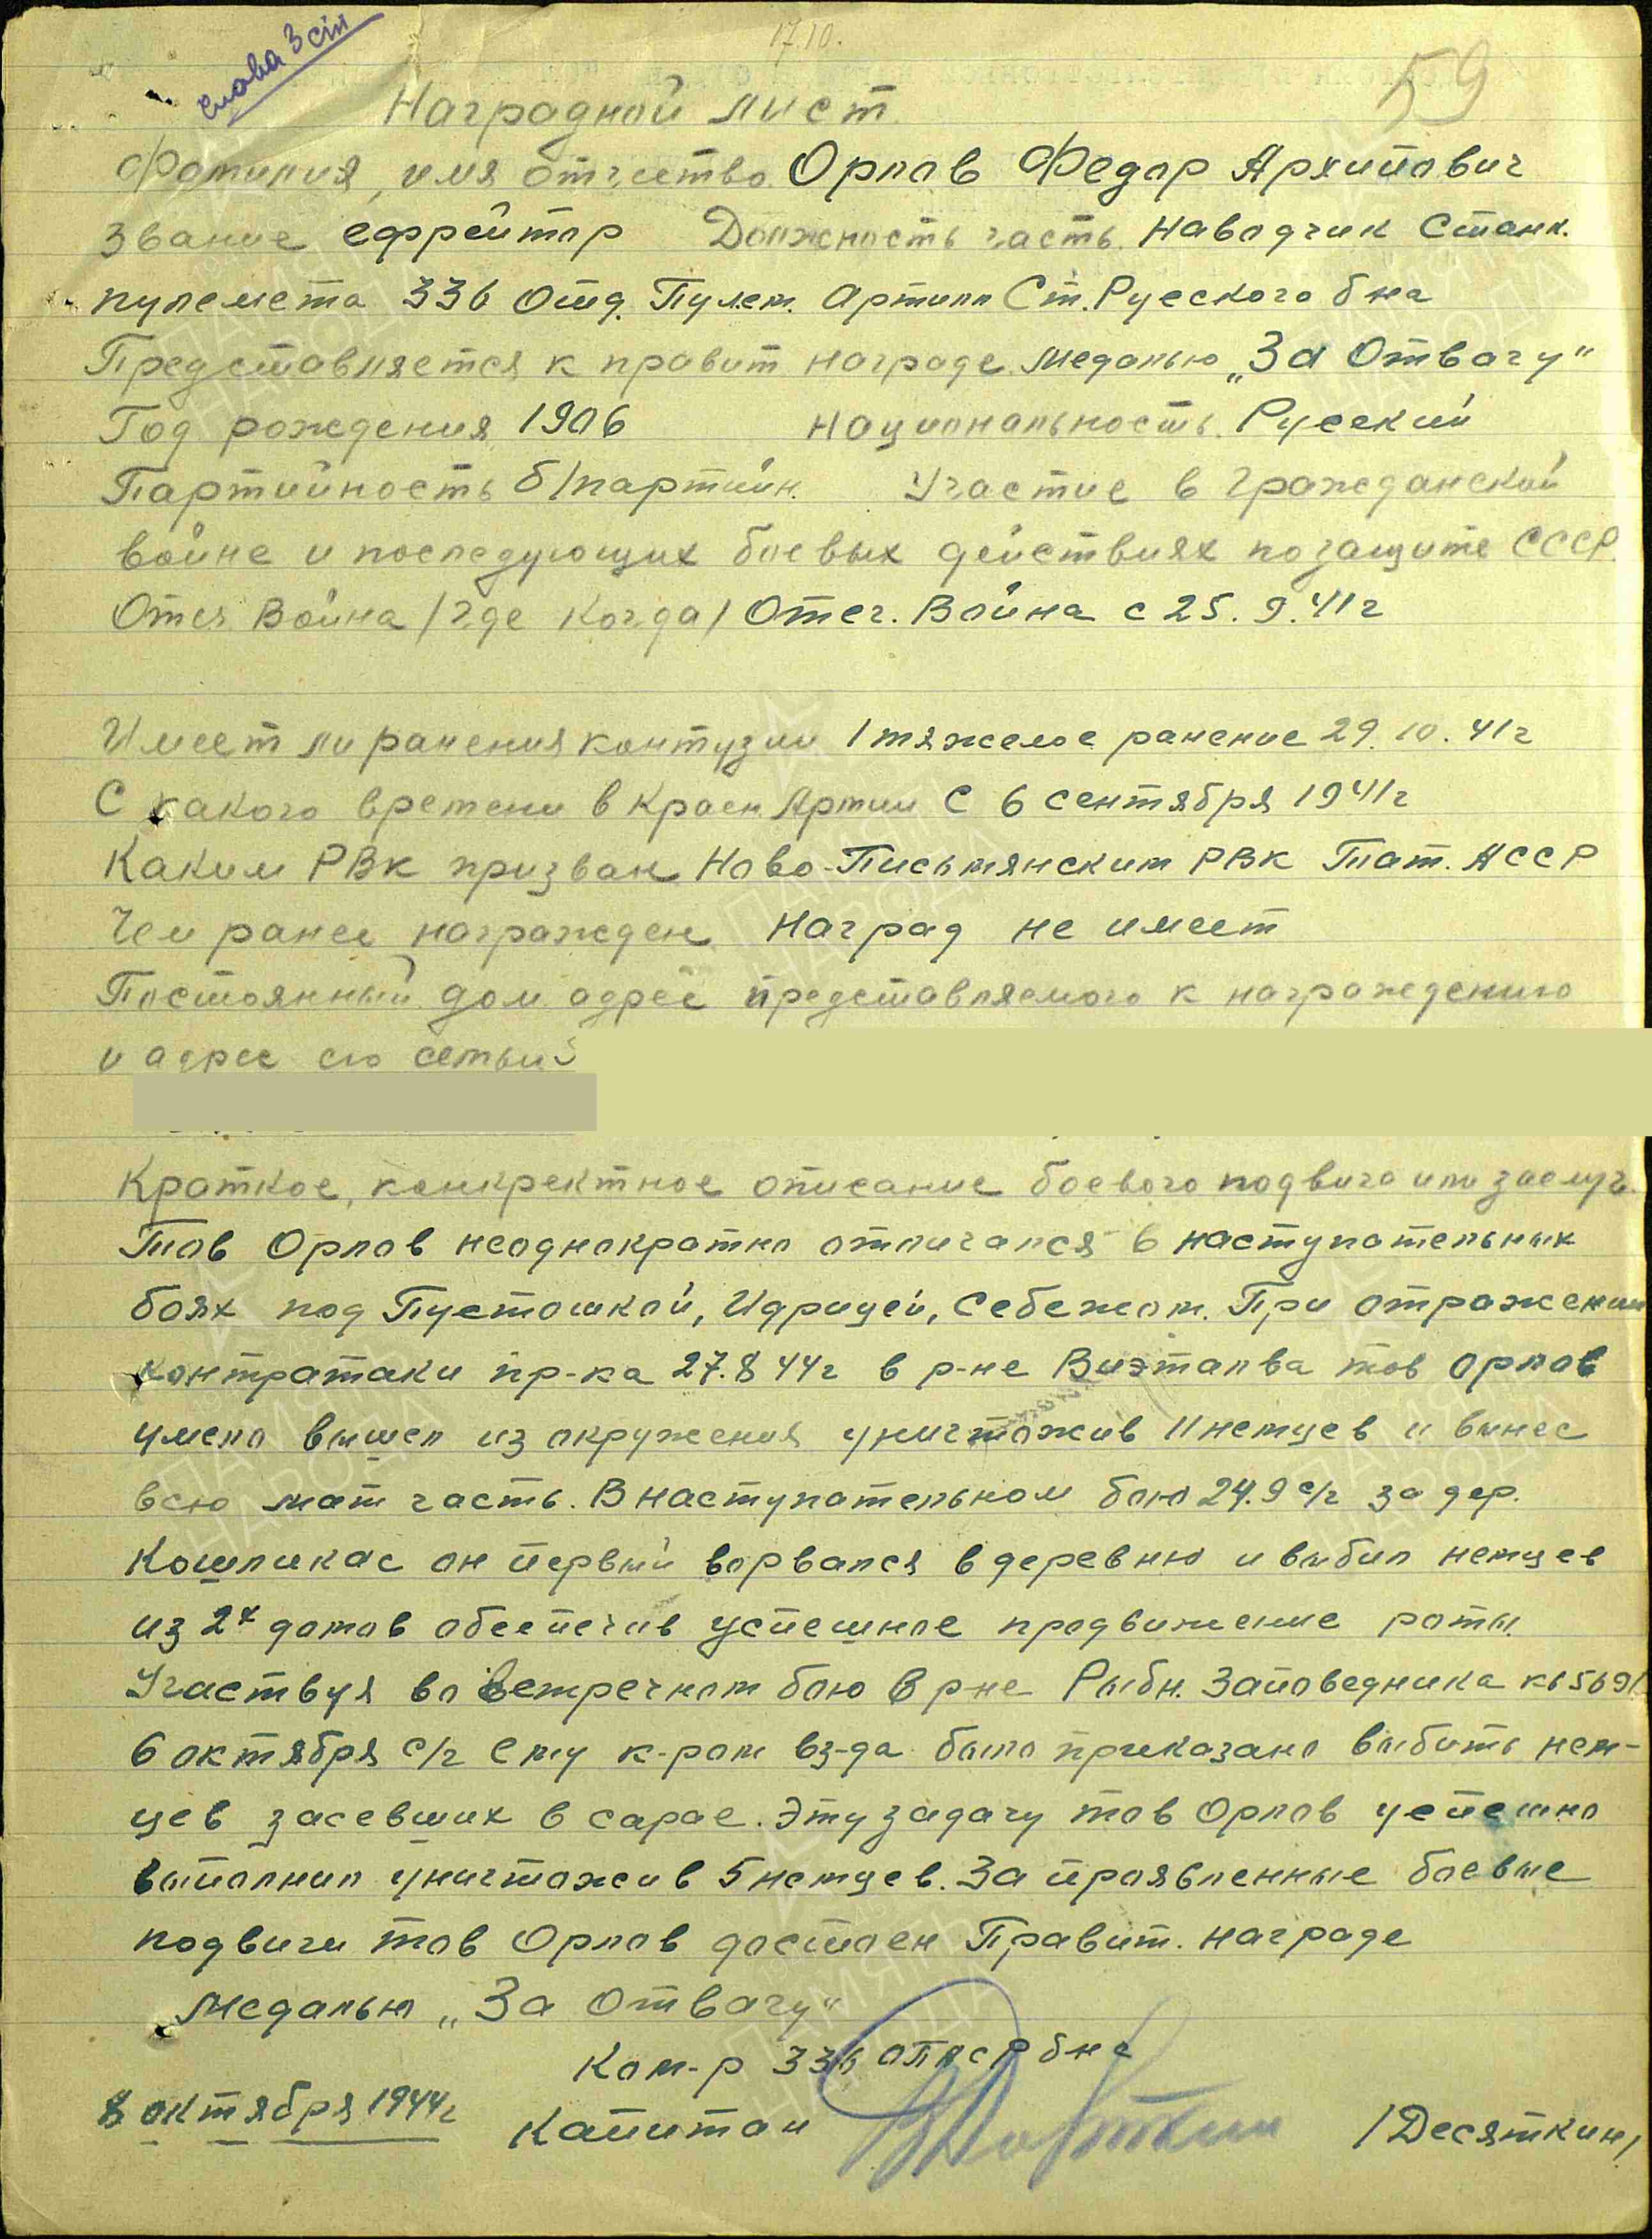 17.10.
слава 3 ст
59
Наградной лист
Фамилия, имя отчество Орлов Федор Архипович
Звание ефрейтор Должность часть Наводчик Станк.
пулемета 336 Отд. Пулем. Артилл Ст. Русского б на
Представляется к правит награде медалью „За Отвагу"
Год рождения 1906 Национальность Русский
Партийность б/партийн. Участие в Гражданской
войне и последующих боевых действиях по защите СССР
Отеч Война /где когда/ Отеч. Война с 25.9.41г
Имеет ли ранения контузии 1 тяжелое ранение 29.10.41г
С какого времени в Красн Армии С 6 сентября 1941г
Каким РВК призван Ново-Письмянским РВК Тат. АССР
Чем ранее награжден Наград не имеет
Постоянный дом адрес представляемого к награждению
и адрес его семьи
Краткое, конкректное описание боевого подвига или заслуг.
Тов Орлов неоднократно отличался в наступательных
боях под Пустошкой, Идрицей, Себежом. При отражении
контратаки пр-ка 27.8 44г в р-не Виэталва тов Орлов
умело вышел из окружения уничтожив 11 немцев и вынес
всю мат часть. В наступательном бою 24.9 с/г за дер.
Кошликас он первый ворвался в деревню и выбил немцев
из 2х домов обеспечив успешное продвижение роты.
Участвуя во встречном бою в р не Рыбн. Заповедника кв 5691
6 октября с/г ему к-ром вз-да было приказано выбить нем-
цев засевших в сарае. Эту задачу тов Орлов успешно
выполнил уничтожив 5 немцев. За проявленные боевые
подвиги тов Орлов достоен Правит. награде
медалью „За Отвагу"
Ком-р 336 ОПАСР бна
8 октября 1944г Капитан /Десяткин/
ПАМЯТЬ НАРОДА